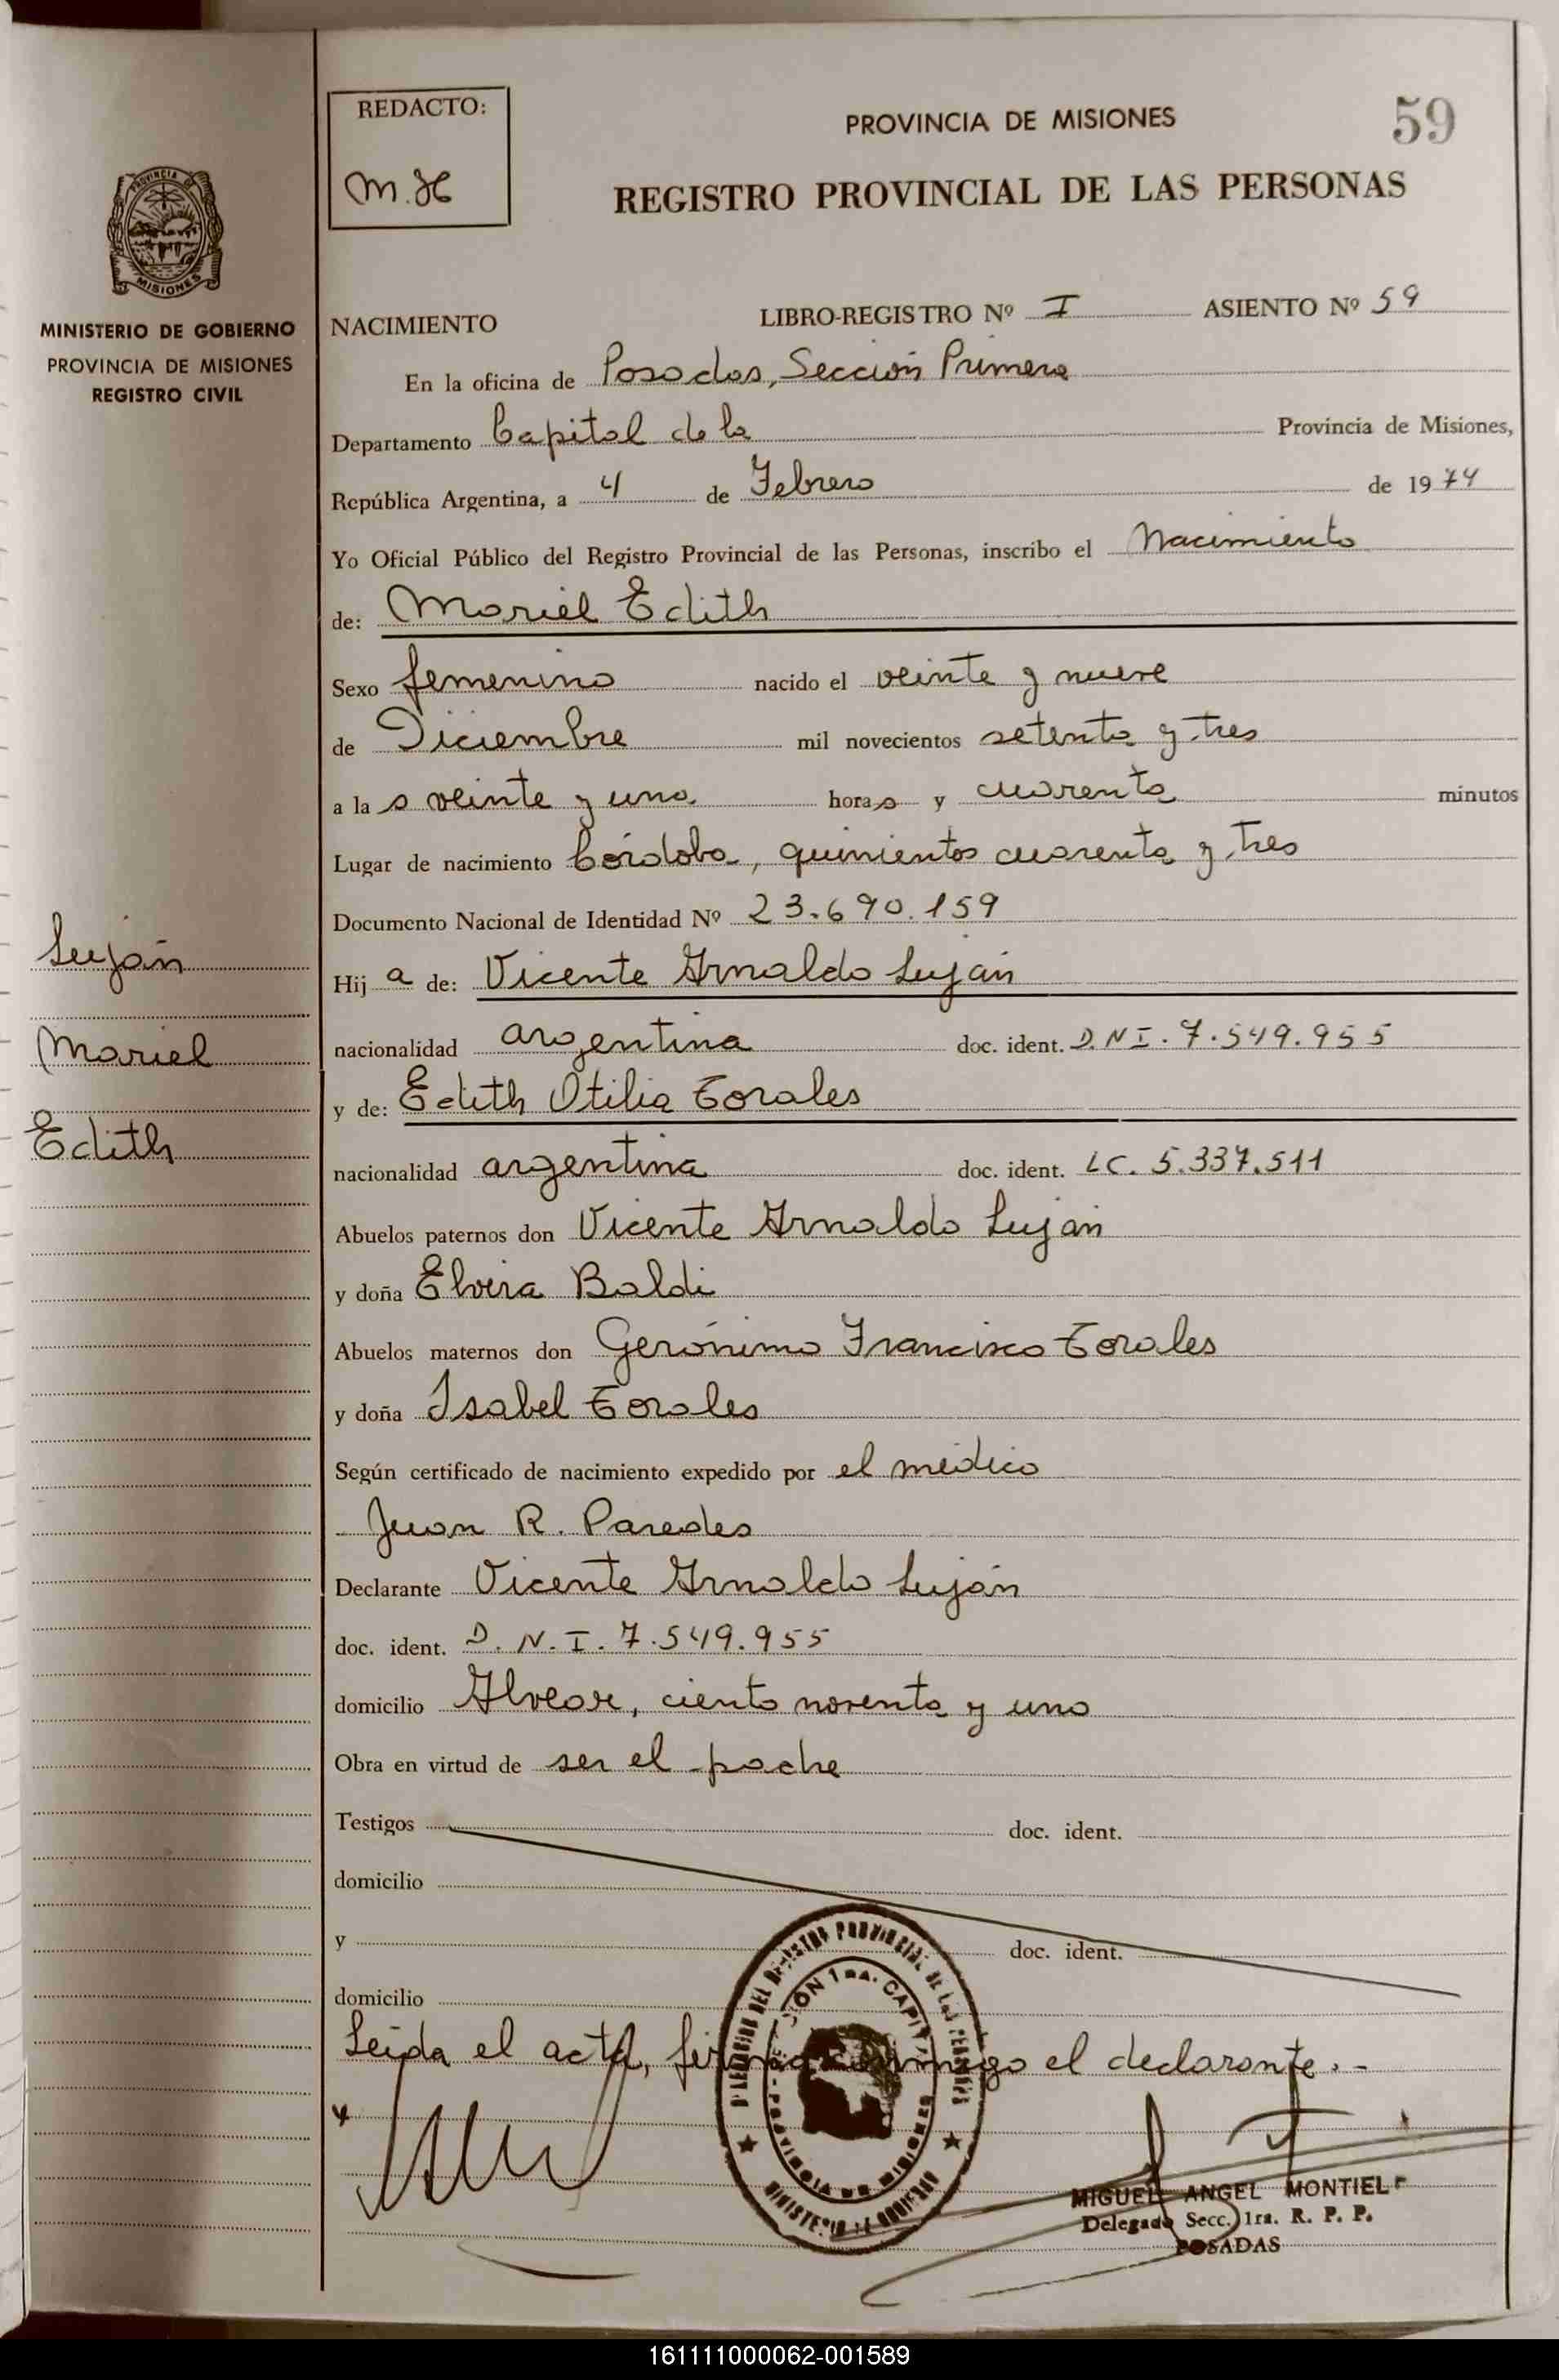 REDACTO:
M. H
PROVINCIA DE MISIONES
59
REGISTRO PROVINCIAL DE LAS PERSONAS
PROVINCIA DE
MISIONES
MINISTERIO DE GOBIERNO
PROVINCIA DE MISIONES
REGISTRO CIVIL
NACIMIENTO LIBRO-REGISTRO Nº I ASIENTO Nº 59
En la oficina de Posadas, Sección Primera
Departamento Capital de la Provincia de Misiones,
República Argentina, a 4 de Febrero de 1974
Yo Oficial Público del Registro Provincial de las Personas, inscribo el Nacimiento
de: Mariel Edith
Sexo femenino nacido el veinte y nueve
de Diciembre mil novecientos setenta y tres
a las veinte y una horas y cuarenta minutos
Lugar de nacimiento Córdoba, quinientos cuarenta y tres
Documento Nacional de Identidad Nº 23.690.159
Luján
Hija de: Vicente Arnaldo Luján
Mariel
nacionalidad argentina doc. ident. D.N.I. 7.549.955
y de: Edith Otilia Torales
Edith
nacionalidad argentina doc. ident. LC. 5.337.511
Abuelos paternos don Vicente Arnaldo Luján
y doña Elvira Baldi
Abuelos maternos don Gerónimo Francisco Torales
y doña Isabel Torales
Según certificado de nacimiento expedido por el médico
Juan R. Paredes
Declarante Vicente Arnaldo Luján
doc. ident. D.N.I. 7.549.955
domicilio Alvear, ciento noventa y uno
Obra en virtud de ser el padre
Testigos doc. ident.
domicilio
y doc. ident.
domicilio
Leída el acta, firma conmigo el declarante.-
MIGUEL ANGEL MONTIEL
Delegado Secc. 1ra. R. P. P.
POSADAS
161111000062-001589